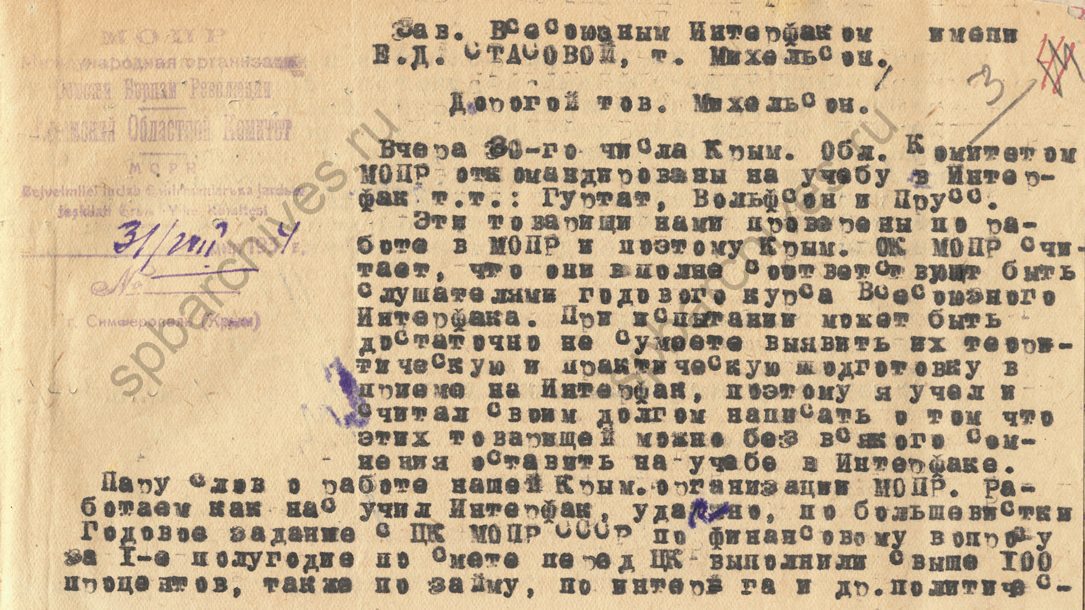 МОПР
Международная организация
Помощи Борцам Революции
Крымский Областной Комитет
МОРП
г. Симферополь (Крым)
31/VIII 1934 г.
№
3
Зав. Всесоюзным Интерфаком имени
Е.Д. СТАСОВОЙ, т. Михельсон.
Дорогой тов. Михельсон.
Вчера 30-го числа Крым. Обл. Комитетом
МОПР откомандированы на учебу в Интер-
фак т.т.: Гуртат, Вольфсон и Прусс.
Эти товарищи нами проверены по ра-
боте в МОПР и поэтому Крым. ОК МОПР счи
тает, что они вполне соответствуют быть
слушателями годового курса Всесоюзного
Интерфака. При испытании может быть
достаточно не сумеете выявить их теори-
тическую и практическую подготовку в
приеме на Интерфак, поэтому я учел и
считал своим долгом написать о том что
этих товарищей можно без всякого сом-
нения оставить на учебе в Интерфаке.
Пару слов о работе нашей Крым.организации МОПР. Ра-
ботаем как нас учил Интерфак, ударно, по большевистки
Годовое задание с ЦК МОПР СССР по финансовому вопросу
за I-е полугодие по смете перед ЦК выполнили свыше 100
процентов, также по займу, по интерв га и др.политичес-
spbarchives.ru
spbarchives.ru